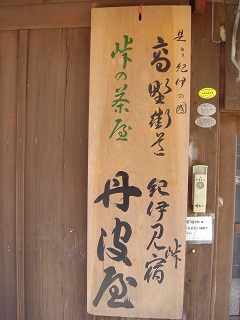 是より紀伊の國
高野街道
紀伊見峠宿
峠の茶屋
丹波屋